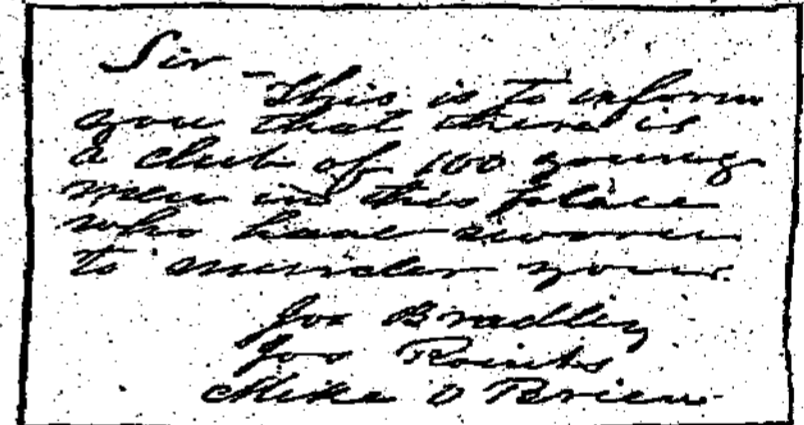 Sir -
This is to inform
you that there is
a club of 100 young
men in this place
who have sworn
to murder you.
Joe Bradley
Joe
Mike O Brien